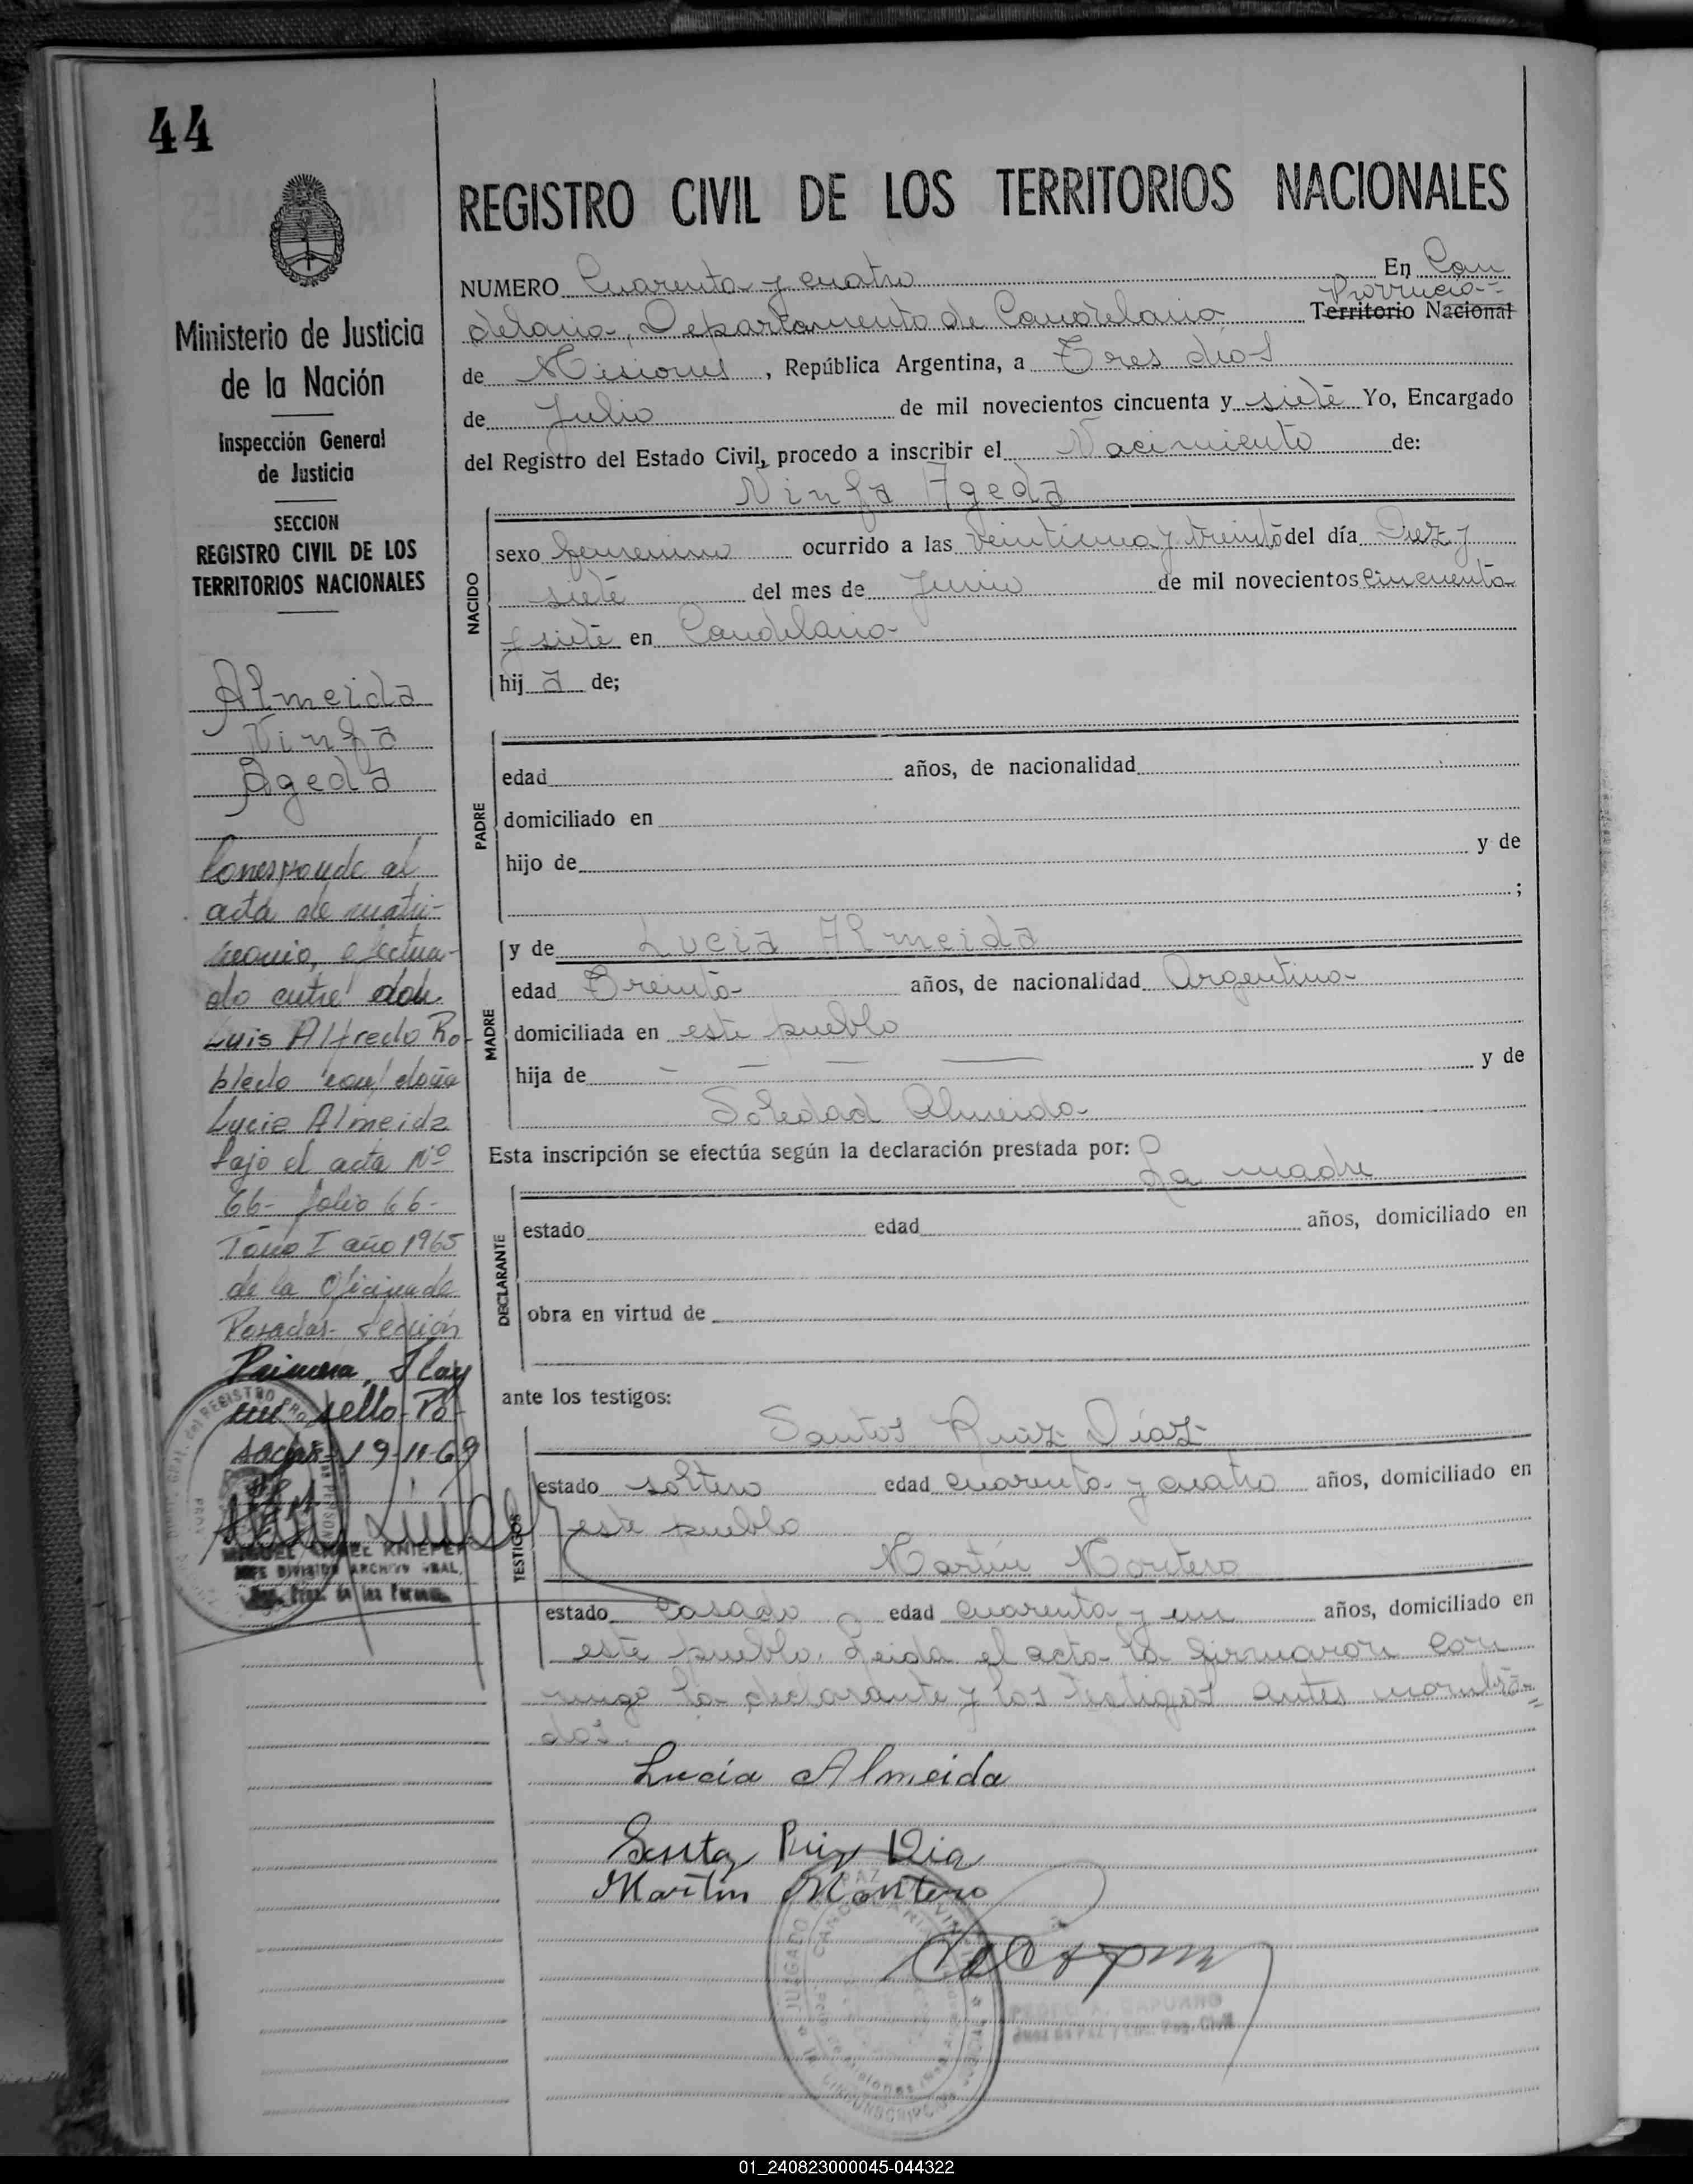 44
REGISTRO CIVIL DE LOS TERRITORIOS NACIONALES
NUMERO Cuarenta y cuatro En Can
delaria, Departamento de Candelaria Provincia Territorio Nacional
de Misiones, República Argentina, a Tres dias
de Julio de mil novecientos cincuenta y siete Yo, Encargado
del Registro del Estado Civil, procedo a inscribir el Nacimiento de:
Ninfa Ageda
NACIDO
sexo femenino ocurrido a las veintiuna y treinta del día Diez y
siete del mes de Junio de mil novecientos cincuenta
y siete en Candelaria
hij a de;
PADRE
edad años, de nacionalidad
domiciliado en
hijo de y de
;
MADRE
y de Lucia Almeida
edad Treinta años, de nacionalidad Argentina
domiciliada en este pueblo
hija de — — — — y de
Soledad Almeida
Esta inscripción se efectúa según la declaración prestada por:
La madre
DECLARANTE
estado edad años, domiciliado en
obra en virtud de
ante los testigos:
TESTIGOS
Santos Ruiz Diaz
estado soltero edad cuarenta y cuatro años, domiciliado en
este pueblo
Martin Montero
estado Casado edad cuarenta y un años, domiciliado en
este pueblo. Leida el acta la firmaron con
migo la declarante y los testigos antes nombra=
dos.
Lucía Almeida
Martin Montero
JUZGADO PAZ
CANDELARIA
Misiones
CIRCUNSCRIPCION
CAPURRO
Ministerio de Justicia
de la Nación
Inspección General
de Justicia
SECCION
REGISTRO CIVIL DE LOS
TERRITORIOS NACIONALES
Almeida
Ninfa
Ageda
Corresponde al
acta de matri-
monio, efectua-
do entre don
Luis Alfredo Ro-
bledo con doña
Lucia Almeida
bajo el acta Nº
66- folio 66-
Tomo I año 1965
de la Oficina de
Posadas- Sección
Primera, Hay
un sello- Po-
sadas- 19-11-69
REGISTRO
MIGUEL KNIEPER
JEFE DIVISION ARCHIVO GRAL.
de las Personas
01_240823000045-044322